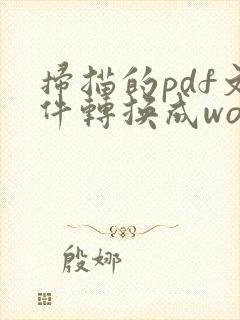 掃描的pdf文
件轉換成wo
殷娜